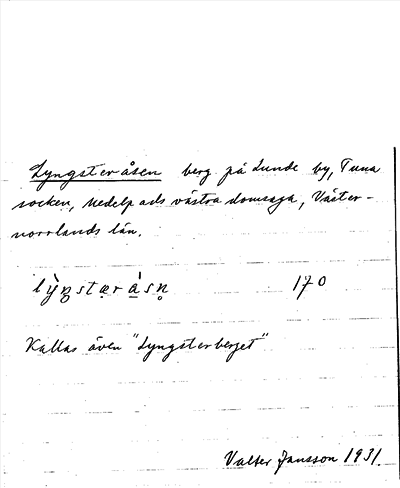 Lyngsteråsen berg på Lunde by, Tuna
socken, Medelpads västra domsaga, Väster-
norrlands län.
lỳŋstæråsn̥ 170
Kallas även "Lyngsterberget"
Valter Jansson 1931.